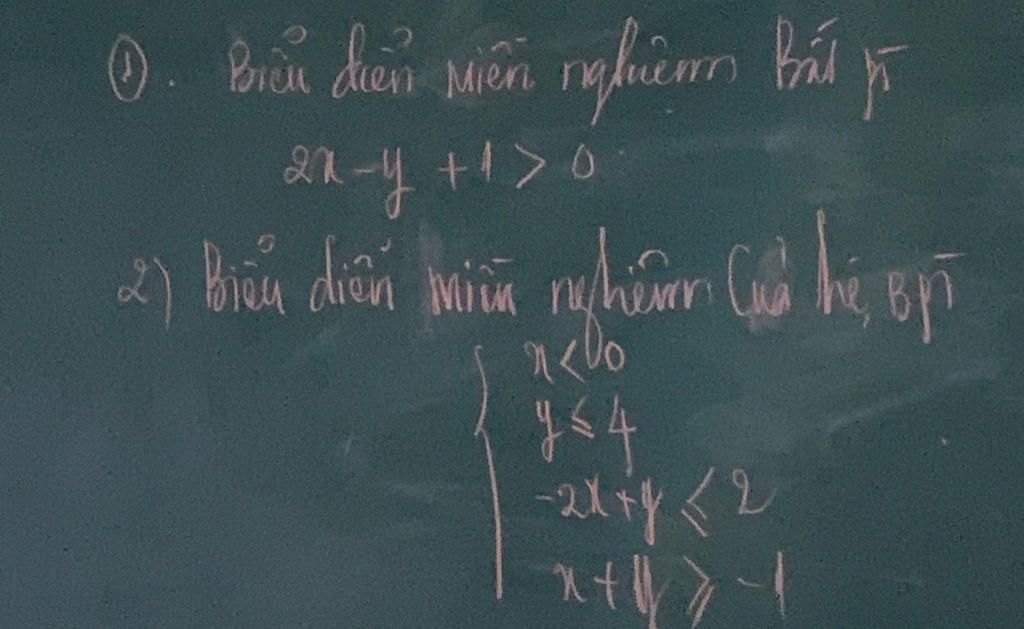 ①. Biểu diễn miền nghiệm Bất pt
2x - y + 1 > 0
2) Biểu diễn miền nghiệm của hệ Bpt
x < 0
y ≤ 4
-2x + y ≤ 2
x + y ≥ -1